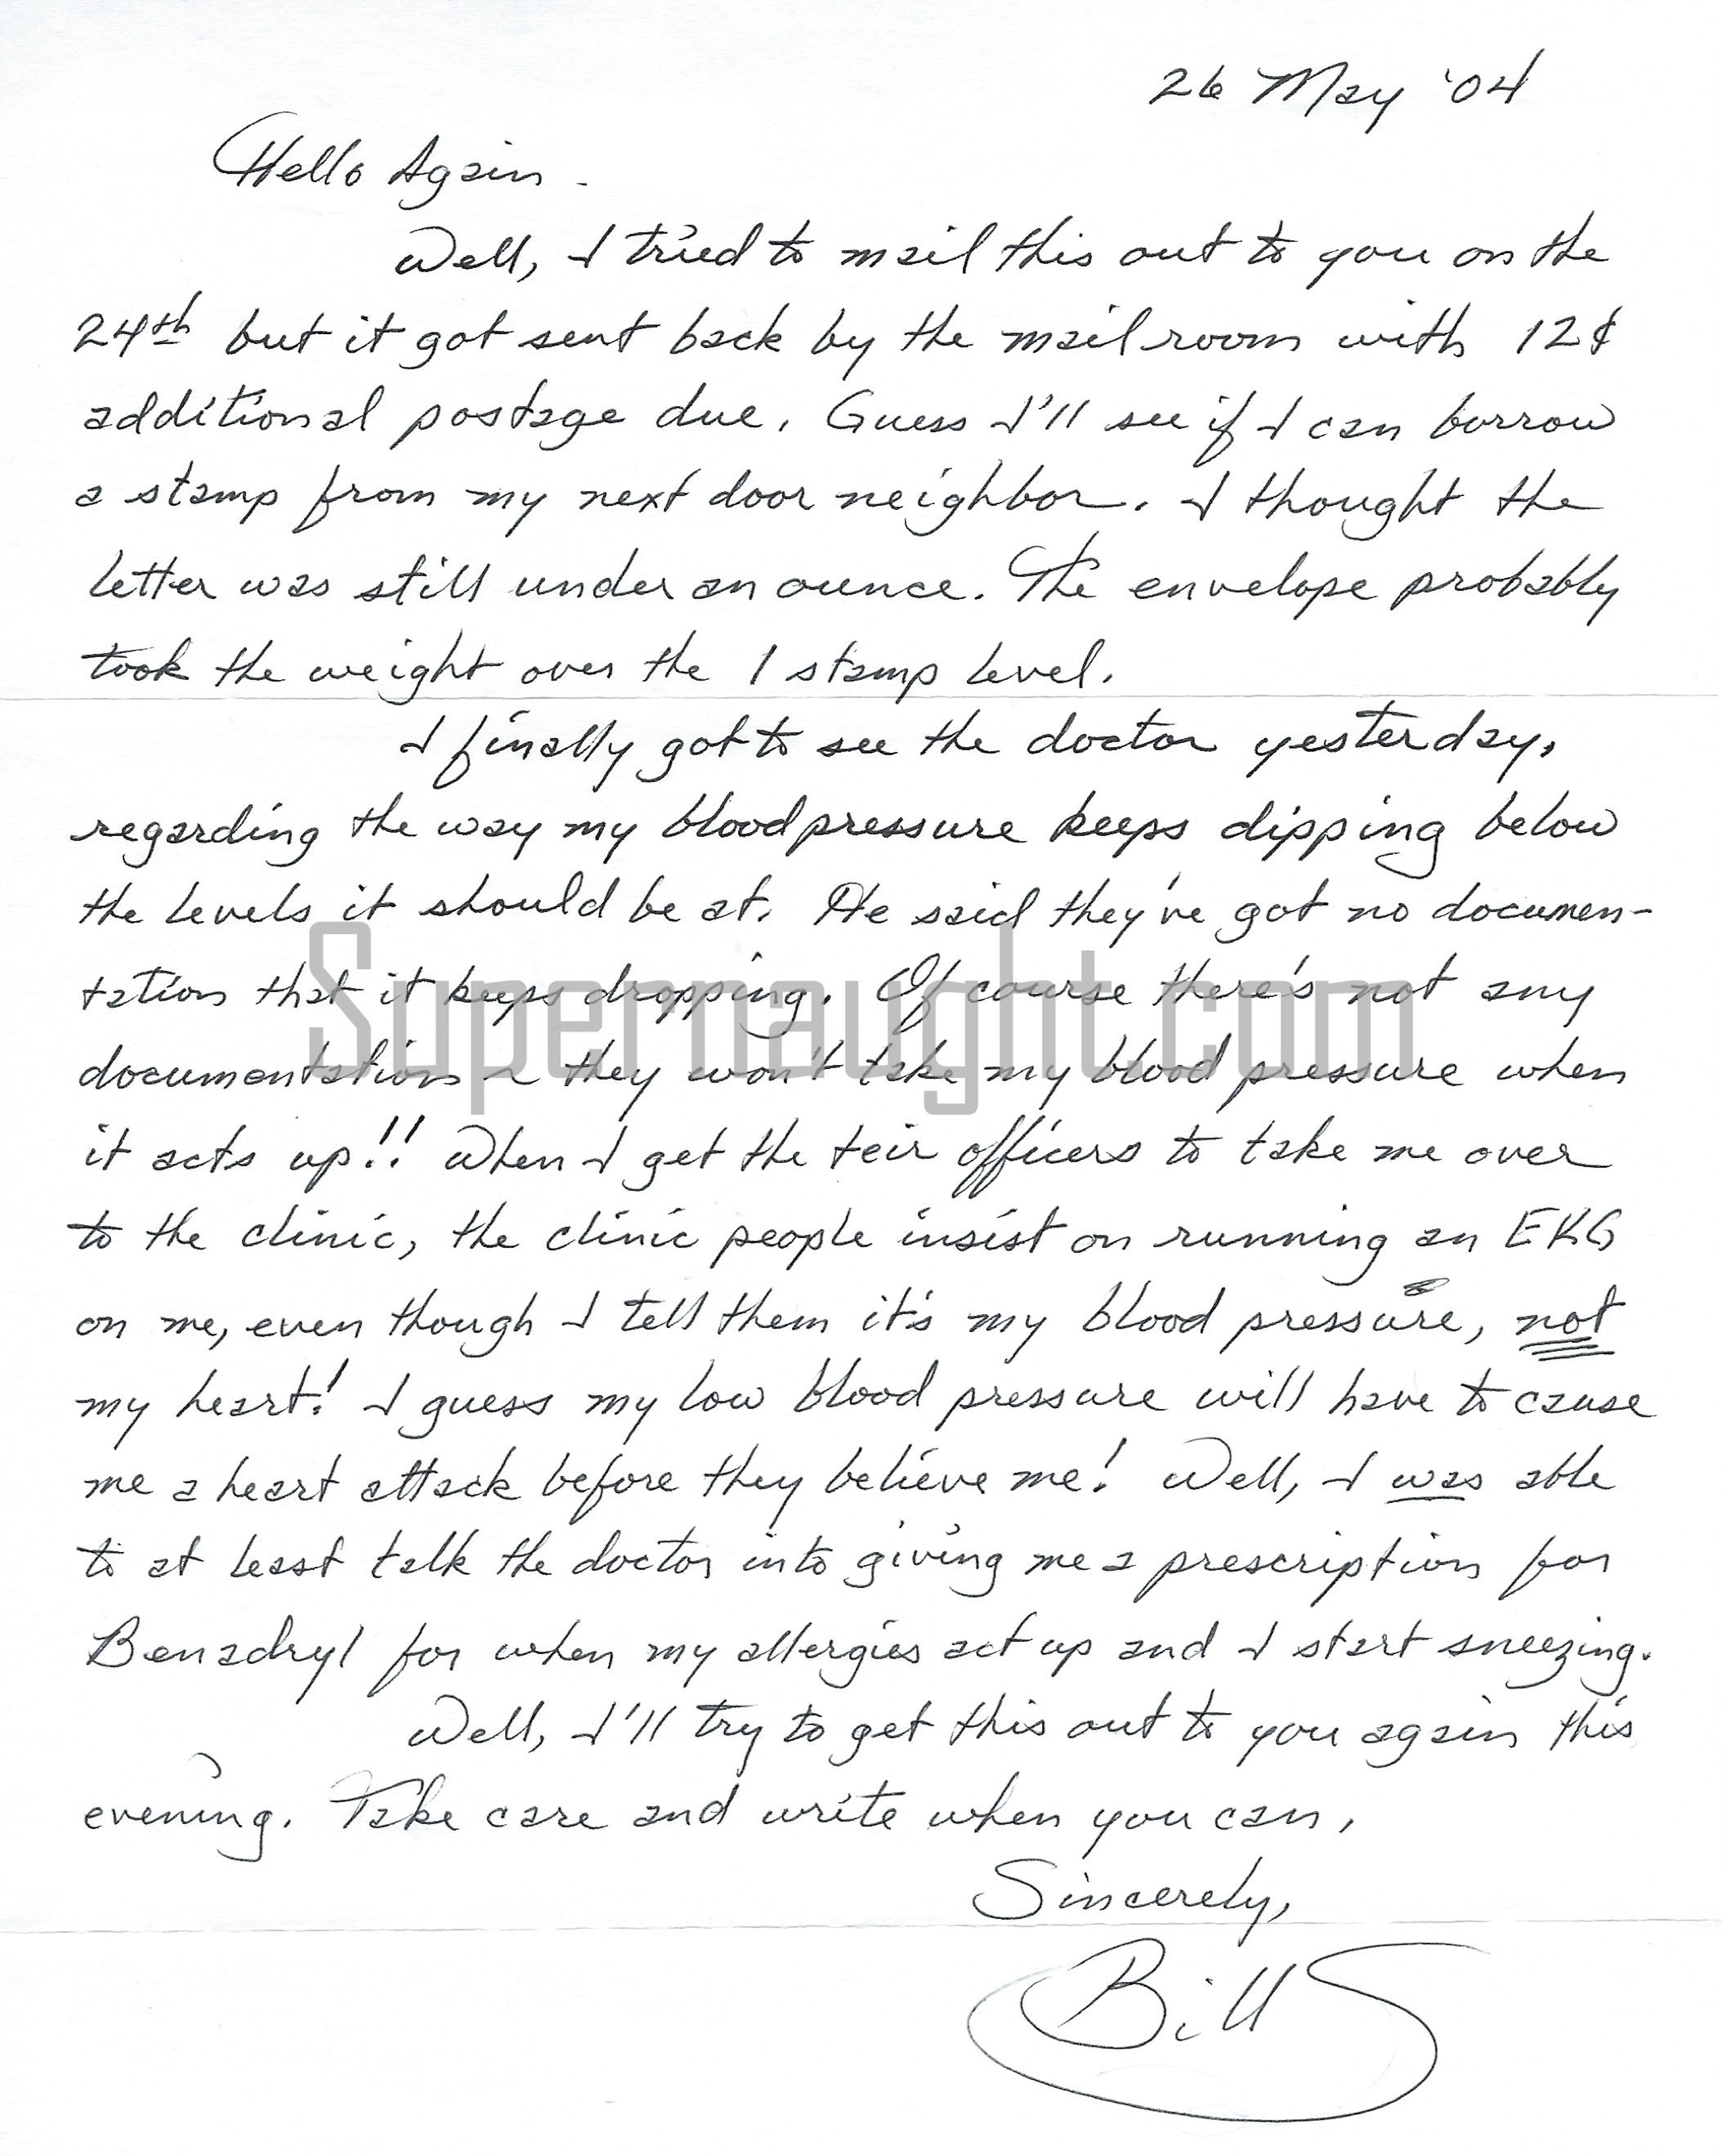 26 May '04
Hello Again.
Well, I tried to mail this out to you on the
24th but it got sent back by the mail room with 12¢
additional postage due. Guess I'll see if I can borrow
a stamp from my next door neighbor. I thought the
letter was still under an ounce. The envelope probably
took the weight over the 1 stamp level.
I finally got to see the doctor yesterday,
regarding the way my blood pressure keeps dipping below
the levels it should be at. He said they've got no documen-
tation that it keeps dropping. Of course there's not any
documentation ~ they won't take my blood pressure when
it acts up!! When I get the teir officers to take me over
to the clinic, the clinic people insist on running an EKG
on me, even though I tell them it's my blood pressure, not
my heart! I guess my low blood pressure will have to cause
me a heart attack before they believe me! Well, I was able
to at least talk the doctor into giving me a prescription for
Benadryl for when my allergies act up and I start sneezing.
Well, I'll try to get this out to you again this
evening. Take care and write when you can,
Sincerely,
Bill
Supernaught.com